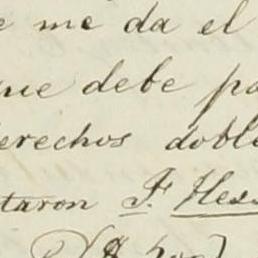 e me da el
que debe pa
derechos doble
taron F. Hess